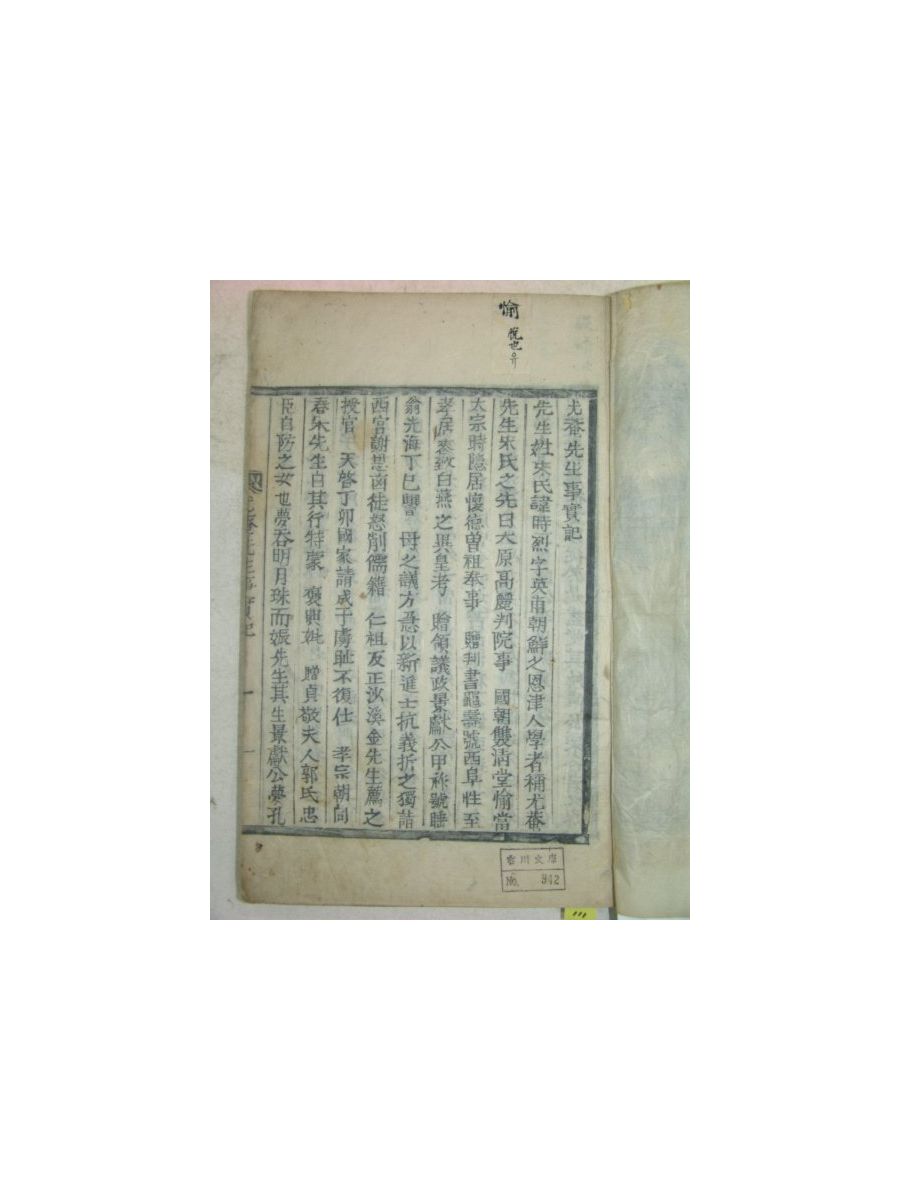 愉
悅也유
尤菴先生事實記
先生姓宋氏諱時烈字英甫朝鮮之恩津人學者稱尤菴
先生宋氏之先曰大原高麗判院事 國朝雙淸堂愉當
太宗時隱居懷德曽祖奉事 贈判書龜壽號西阜性至
孝居喪致白燕之異皇考 贈領議政景獻公甲祚號睡
翁光海丁巳讐 母之議方急以新進士抗義折之獨詣
西宮謝恩凶徒怒削儒籍 仁祖反正沙溪金先生薦之
授官 天啓丁卯國家請成于虜耻不復仕 孝宗朝同
春宋先生白其行特蒙 褒典妣 贈貞敬夫人郭氏忠
臣自防之女也夢呑明月珠而娠先生其生景獻公夢孔
尤菴先生事實記 一
香川文庫
No. 942